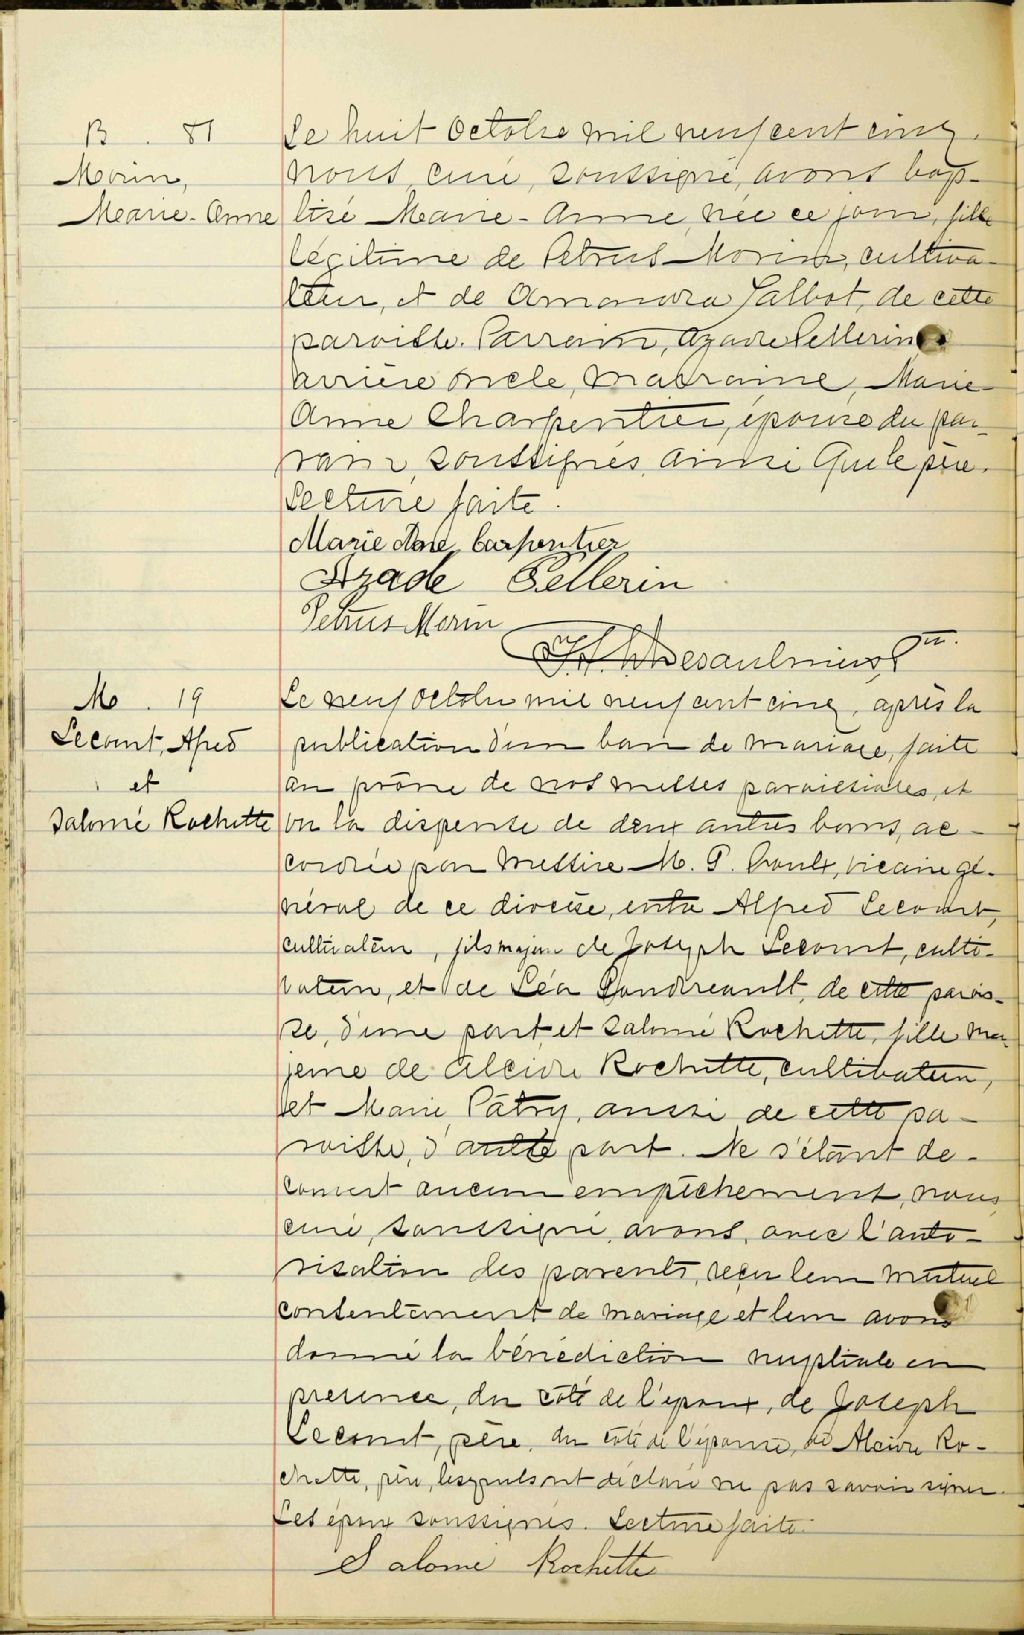 B. 81
Morin,
Marie-Anne
Le huit Octobre mil neuf cent cinq.
nous, curé, soussigné, avons bap-
tisé Marie-Anne, née ce jour, fille
légitime de Petrus Morin, cultiva-
teur, et de Amanda Talbot, de cette
paroisse. Parrain, Azade Pellerin
arrière oncle, marraine, Marie-
Anne Charpentier, épouse du par-
rain, soussignés, ainsi que le père.
Lecture faite.
Marie Ane Carpentier
Azade Pellerin
Petrus Morin
Desaulniers, Ptre.
M. 19
Lecourt, Afred
et
Salomé Rochette
Le neuf Octobre mil neuf cent cinq, après la
publication d'un ban de mariage, faite
au prône de nos messes paroissiales, et
vu la dispense de deux autres bans, ac-
cordée par Messire M. G. Proulx, vicaire gé-
néral de ce diocèse, entre Alfred Lecourt,
cultivateur, fils majeur de Joseph Lecourt, culti-
vateur, et de Léa Gaudreault, de cette parois-
se, d'une part, et Salomé Rochette, fille ma-
jeure de Alcide Rochette, cultivateur,
et Marie Patry, aussi de cette pa-
roisse, d'autre part. Ne s'étant dé-
couvert aucun empêchement, nous,
curé, soussigné, avons, avec l'auto-
risation des parents, reçu leur mutuel
consentement de mariage et leur avons
donné la bénédiction nuptiale en
présence, du côté de l'époux, de Joseph
Lecourt, père, du côté de l'épouse, de Alcide Ro-
chette, père, lesquels ont déclaré ne pas savoir signer.
Les époux soussignés. Lecture faite.
Salomé Rochette